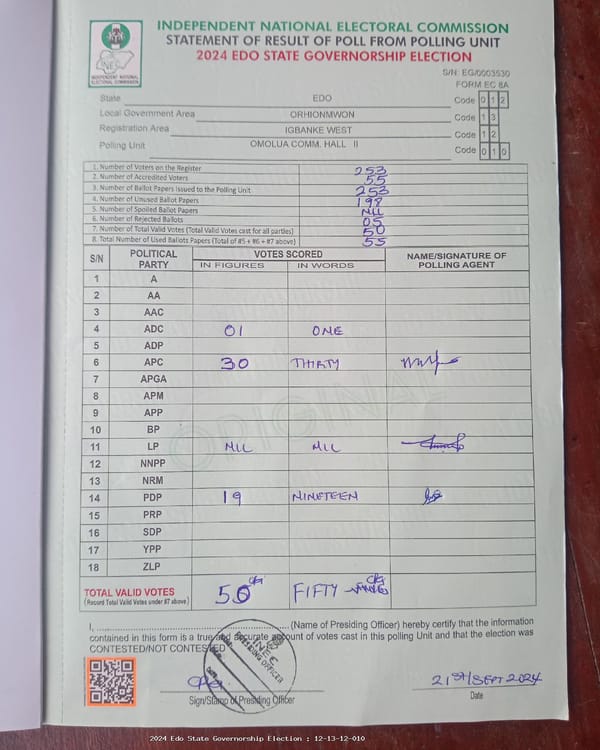 INDEPENDENT NATIONAL ELECTORAL COMMISSION
STATEMENT OF RESULT OF POLL FROM POLLING UNIT
2024 EDO STATE GOVERNORSHIP ELECTION
INEC
INDEPENDENT NATIONAL ELECTORAL COMMISSION
S/N: EG/0003530
FORM EC 8A
State EDO Code 0 1 2
Local Government Area ORHIONMWON Code 1 3
Registration Area IGBANKE WEST Code 1 2
Polling Unit OMOLUA COMM. HALL II Code 0 1 0
1. Number of Voters on the Register 253
2. Number of Accredited Voters 55
3. Number of Ballot Papers Issued to the Polling Unit 253
4. Number of Unused Ballot Papers 198
5. Number of Spoiled Ballot Papers NIL
6. Number of Rejected Ballots 05
7. Number of Total Valid Votes (Total Valid Votes cast for all parties) 50
8. Total Number of Used Ballots Papers (Total of #5 + #6 + #7 above) 55
S/N POLITICAL PARTY VOTES SCORED NAME/SIGNATURE OF POLLING AGENT
IN FIGURES IN WORDS
1 A
2 AA
3 AAC
4 ADC 01 ONE
5 ADP
6 APC 30 THIRTY
7 APGA
8 APM
9 APP
10 BP
11 LP NIL NIL
12 NNPP
13 NRM
14 PDP 19 NINETEEN
15 PRP
16 SDP
17 YPP
18 ZLP
ORIGINAL
TOTAL VALID VOTES 50 FIFTY
(Record Total Valid Votes under #7 above)
I, (Name of Presiding Officer) hereby certify that the information
contained in this form is a true and accurate account of votes cast in this polling Unit and that the election was
CONTESTED/NOT CONTESTED
INEC
PRESIDING OFFICER
21ST/SEPT 2024
Sign/Stamp of Presiding Officer Date
2024 Edo State Governorship Election : 12-13-12-010